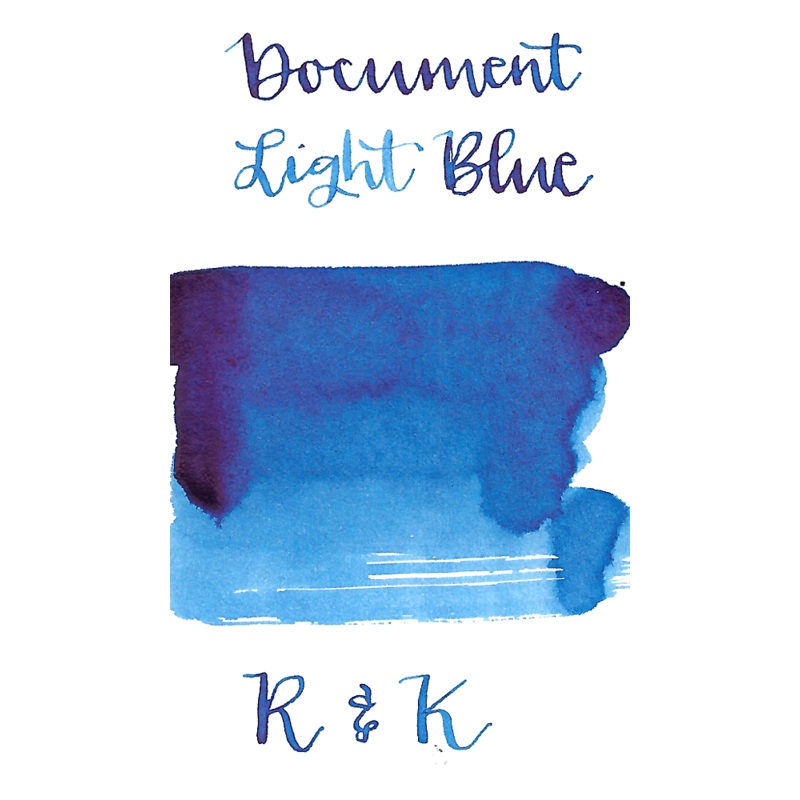 Document
Light Blue
R & K